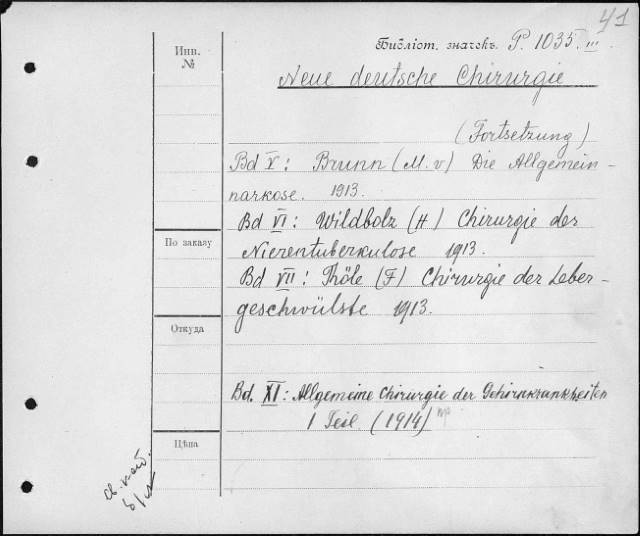 41
Библіот. значекъ P. 1035 III.
Инв. №
Neue deutsche Chirurgie
(Fortsetzung)
Bd V: Brunn (M. v) Die Allgemein-
narkose. 1913.
Bd VI: Wildbolz (H) Chirurgie der
Nierentuberkulose 1913.
По заказу
Bd VII: Thöle (F) Chirurgie der Leber-
geschwülste 1913.
Откуда
Bd. XI: Allgemeine Chirurgie der Gehirnkrankheiten
1 Teil (1914)
Цѣна